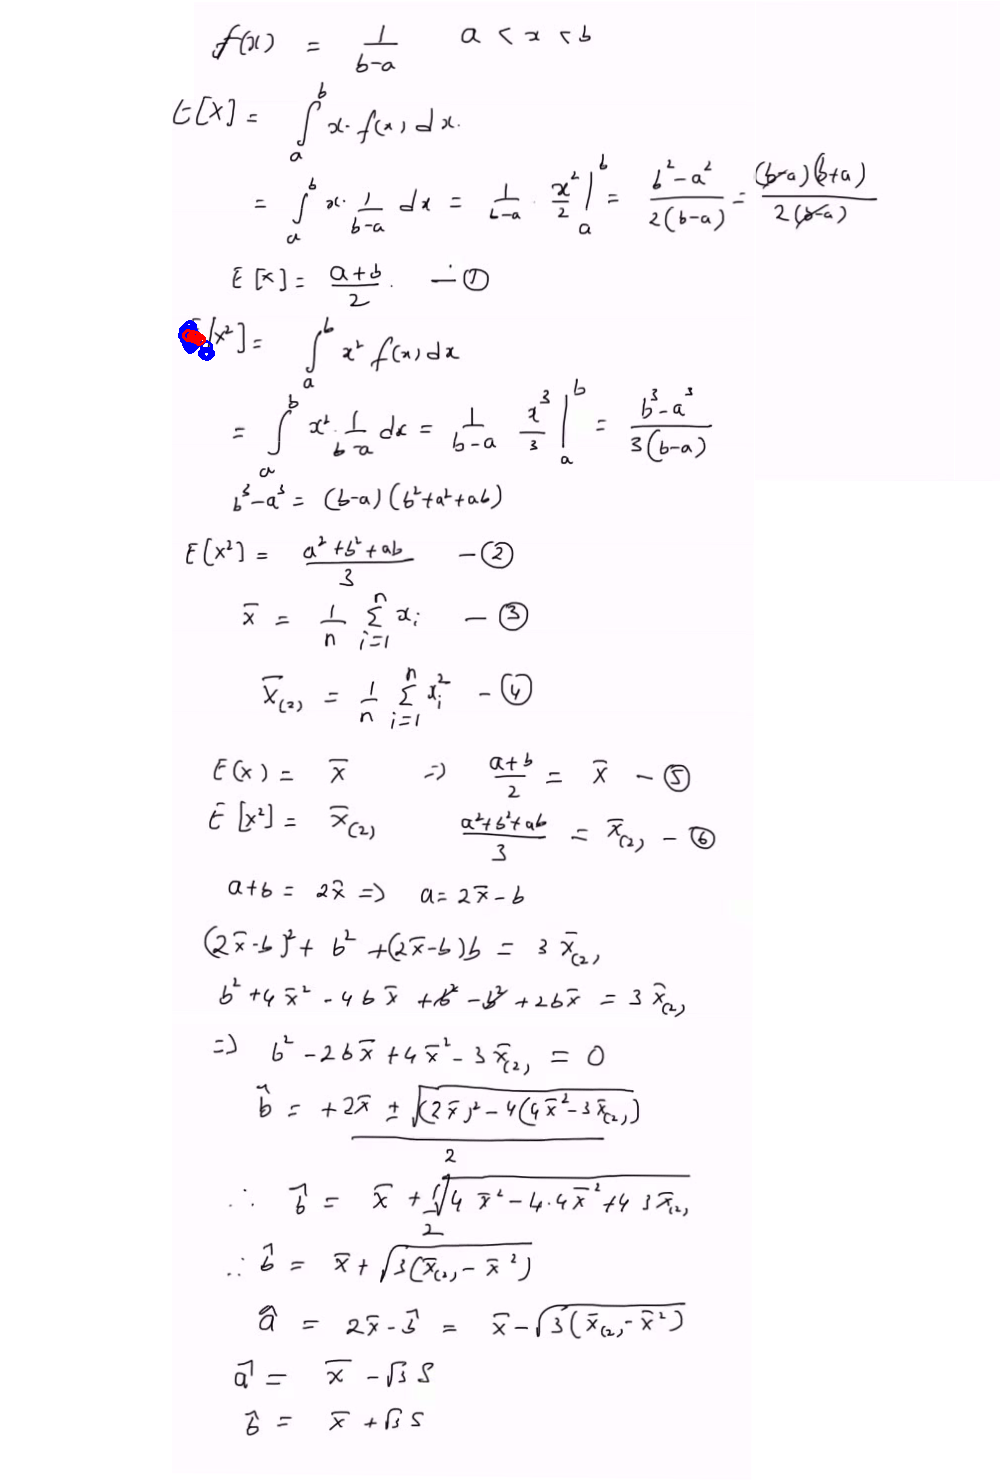 f(x) = 1/(b-a) a < x < b
E[X] = ∫_a^b x· f(x) dx.
= ∫_a^b x· 1/(b-a) dx = 1/(b-a) · x²/2 |_a^b = (b²-a²)/(2(b-a)) = (b-a)(b+a)/(2(b-a))
E[x] = (a+b)/2. — ①
[x²] = ∫_a^b x² f(x) dx
= ∫_a^b x² · 1/(b-a) dx = 1/(b-a) x³/3 |_a^b = (b³-a³)/(3(b-a))
b³-a³ = (b-a)(b²+a²+ab)
E[x²] = (a²+b²+ab)/3 — ②
x̄ = 1/n Σ_{i=1}^n x_i — ③
x̄_(2) = 1/n Σ_{i=1}^n x_i² — ④
E(x) = x̄ ⇒ (a+b)/2 = x̄ — ⑤
E[x²] = x̄_(2) (a²+b²+ab)/3 = x̄_(2) — ⑥
a+b = 2x̄ ⇒ a = 2x̄-b
(2x̄-b)² + b² + (2x̄-b)b = 3 x̄_(2)
b² + 4x̄² - 4bx̄ + b² - b² + 2bx̄ = 3 x̄_(2)
⇒ b² - 2bx̄ + 4x̄² - 3x̄_(2) = 0
b̂ = (+2x̄ ± √((2x̄)² - 4(4x̄² - 3x̄_(2))))/2
∴ b̂ = x̄ + √(4x̄² - 4·4x̄² + 4 3x̄_(2))/2
∴ b̂ = x̄ + √(3(x̄_(2) - x̄²))
â = 2x̄ - b̂ = x̄ - √(3(x̄_(2) - x̄²))
â = x̄ - √3 S
b̂ = x̄ + √3 S